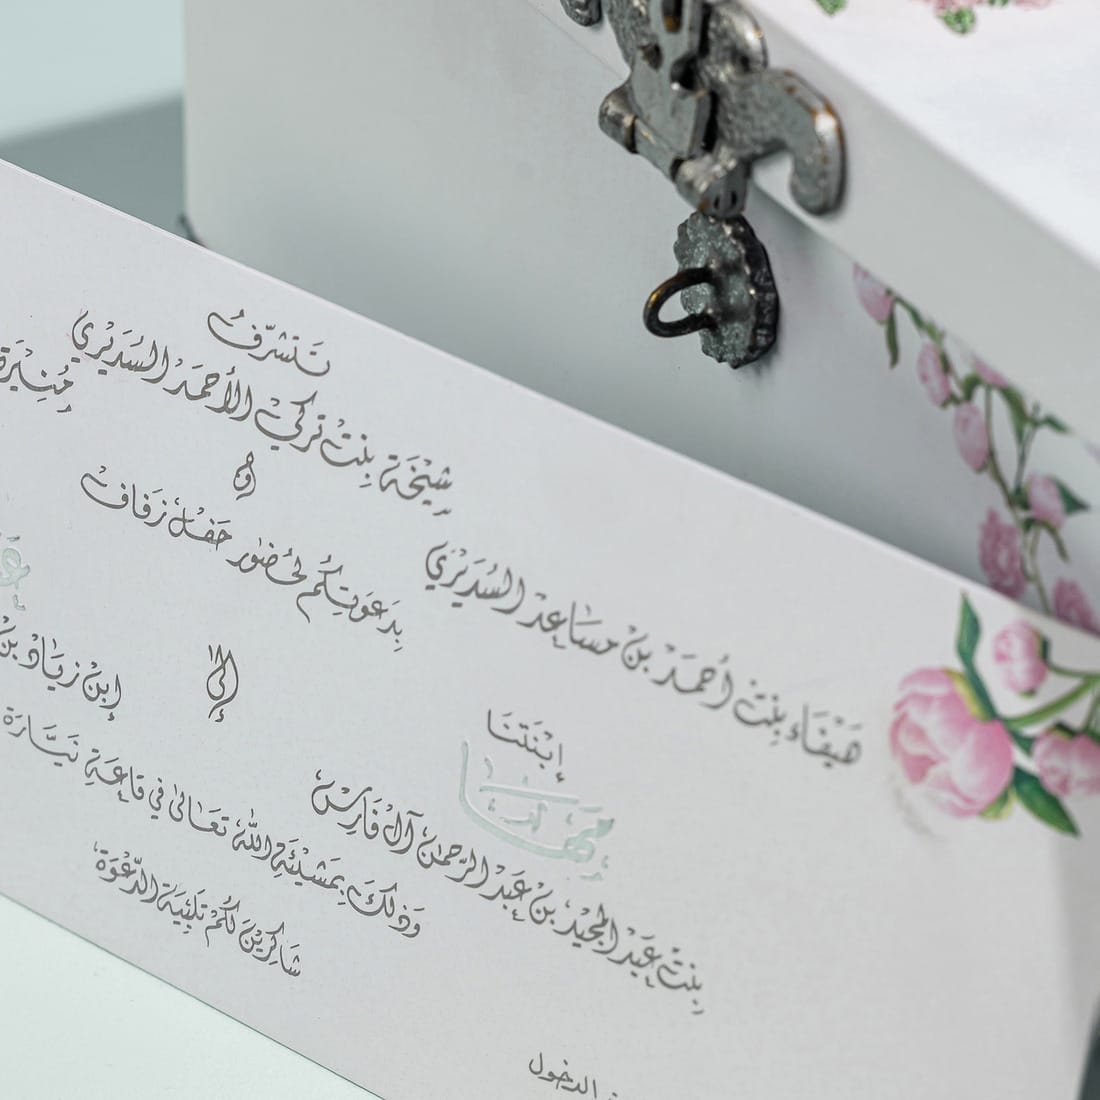 تَتَشَرَّفُ
شَيْخَة بِنْتْ تركي الأحمَد السّدَيْرْي
مُنِيْرَة
و
هَيْفَاء بِنْتْ أحْمَدْ بِنْ مسَاعِدْ السّدَيْرْي
بِدَعوَتِكُم لحُضوْر حَفلْ زفَافْ
إبْنَتَنَا
مهَا
بِنْتْ عَبْد المجيْد بنْ عَبْد الرّحمنْ آلْ فَارِسْ
إلىْ
إبنْ زيَادْ بنْ
وَذلكَ بِمَشيْئَةِ اللّه تعَالىْ في قاعَةِ نيَّارَة
شَاكِريْنَ لكُمْ تَلبِيَة الدّعْوَة
الدخول